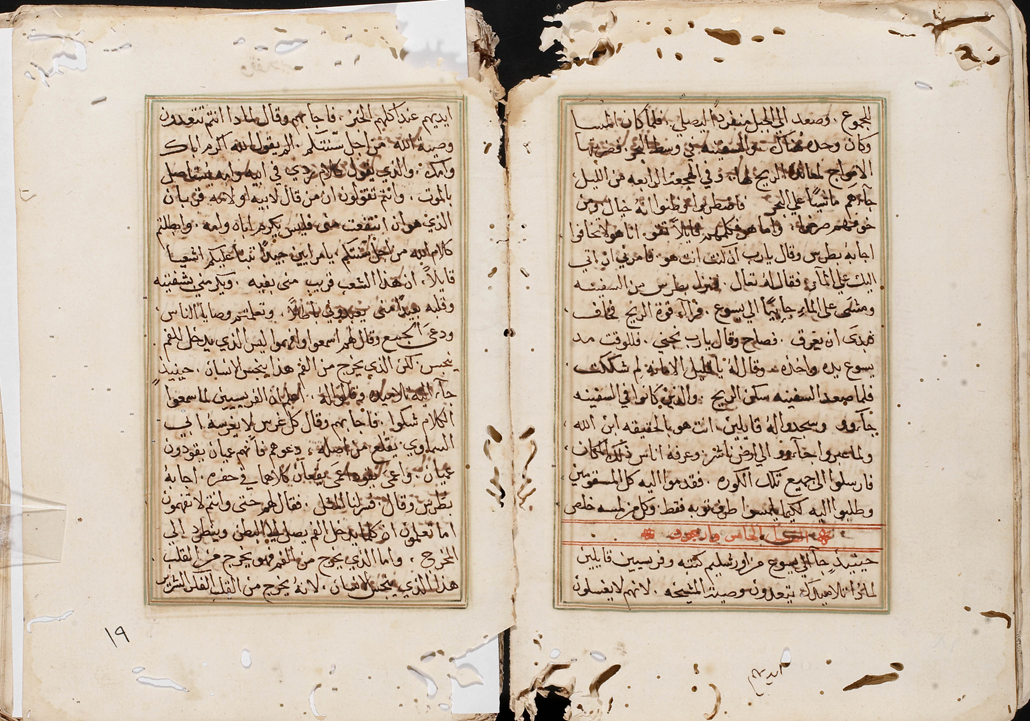 الجموع . وصعد الي الجبل منفرد ليصلي . فلما كان المسا
وكان وحده هناك . والسفينه في وسط البحر فضربتها
الامواج لمعاندة الريح لها . وفي الهجعه الرابعه من الليل
جاءهم ماشيًا علي البحر . فاضطربوا وظنوا انه خيال ومن
خوفهم صرخوا . واما هو كلمهم قايلاً ثقو . انا هو لا تخافوا
اجابه بطرس وقال يارب ان كنت انت هو فامرني ان اتي
اليك علي المآء . فقال له تعال فنزل بطرس من السفينه
ومشي علي الماء جايًا الي يسوع . فرآء قوة الريح فخاف
فبدي ان يغرق . فصاح وقال يارب نجيني . فللوقت مد
يسوع يده واخذه . وقال له يا قليل الامانه لم شككت
فلما صعد السفينه سكن الريح . والذين كانوا في السفينه
جآوو وسجدوا له قايلين انت هو بالحقيقه ابن الله
ولما عبروا جآوو الي ارض ياشر . وعرفه اناس ذلك المكان
فارسلوا الي جميع تلك الكوره . فقدموا اليه كل المسقومين
وطلبوا اليه لكيما يلمسوا طرف ثوبه فقط وكل من لمسه خلص
الخامس
حينيذ جآ الي يسوع من اورشليم كتبه وفريسيين قايلين
لماذا تلاميذك يتعدون وصية المشيخه . لانهم لا يغسلون
ايديهم
ايديهم عند اكلهم الخبز . فاجابهم وقال لماذا انتم تتعدون
وصية الله من اجل سنتكم . الم يقول الله اكرم اباك
وامك . والذي يقول كلام ردي في ابيه وامه
بالموت . وانتم تقولون ان من قال لابيه او لامه قربان
الذي هو ان انتفعت مني فليس يكرم اباه وامه . وابطلتم
كلام الله من اجل سنتكم . يا مرايين جيدًا تنبا عليكم اشعيا
قايلاً . ان هذا الشعب قريب مني بفيه . ويكرمني بشفتيه
وقلبه بعيد مني يعبدوني باطلاً . وتعلمتم وصايا الناس
ودعي الجميع وقال لهم اسمعوا وافهموا ليس الذي يدخل الفم
ينجس . لكن الذي يخرج من الفم هذا ينجس الانسان . حينيذ
جآء اليه تلاميذه وقالوا له . اعلم ان الفريسيين لما سمعوا
الكلام شكوا . فاجابهم وقال كل غرس لا يغرسه ابي
السماوي يقلع من اصله . دعوهم فانهم عميان يقودون
عميان . واعمي يقود اعمي يقعان كلاهما في حفره . اجابه
بطرس وقال . فسر لنا المثل . فقال لهم حتي وانتم لا تفهمون
اما تعلمون ان كلما يدخل الفم يصل الي البطن وينطرد الي
المخرج . واما الذي يخرج من الفم فهو يخرج من القلب
هذا الذي ينجس الانسان . لانه يخرج من القلب الفكر الشرير
١٩